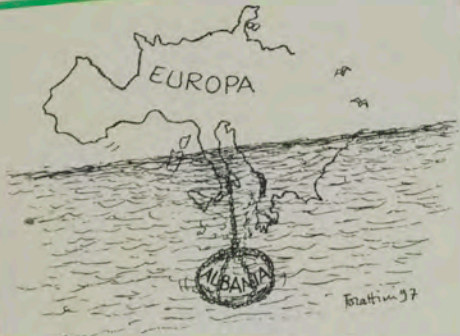 EUROPA
ALBANIA
Forattini 97